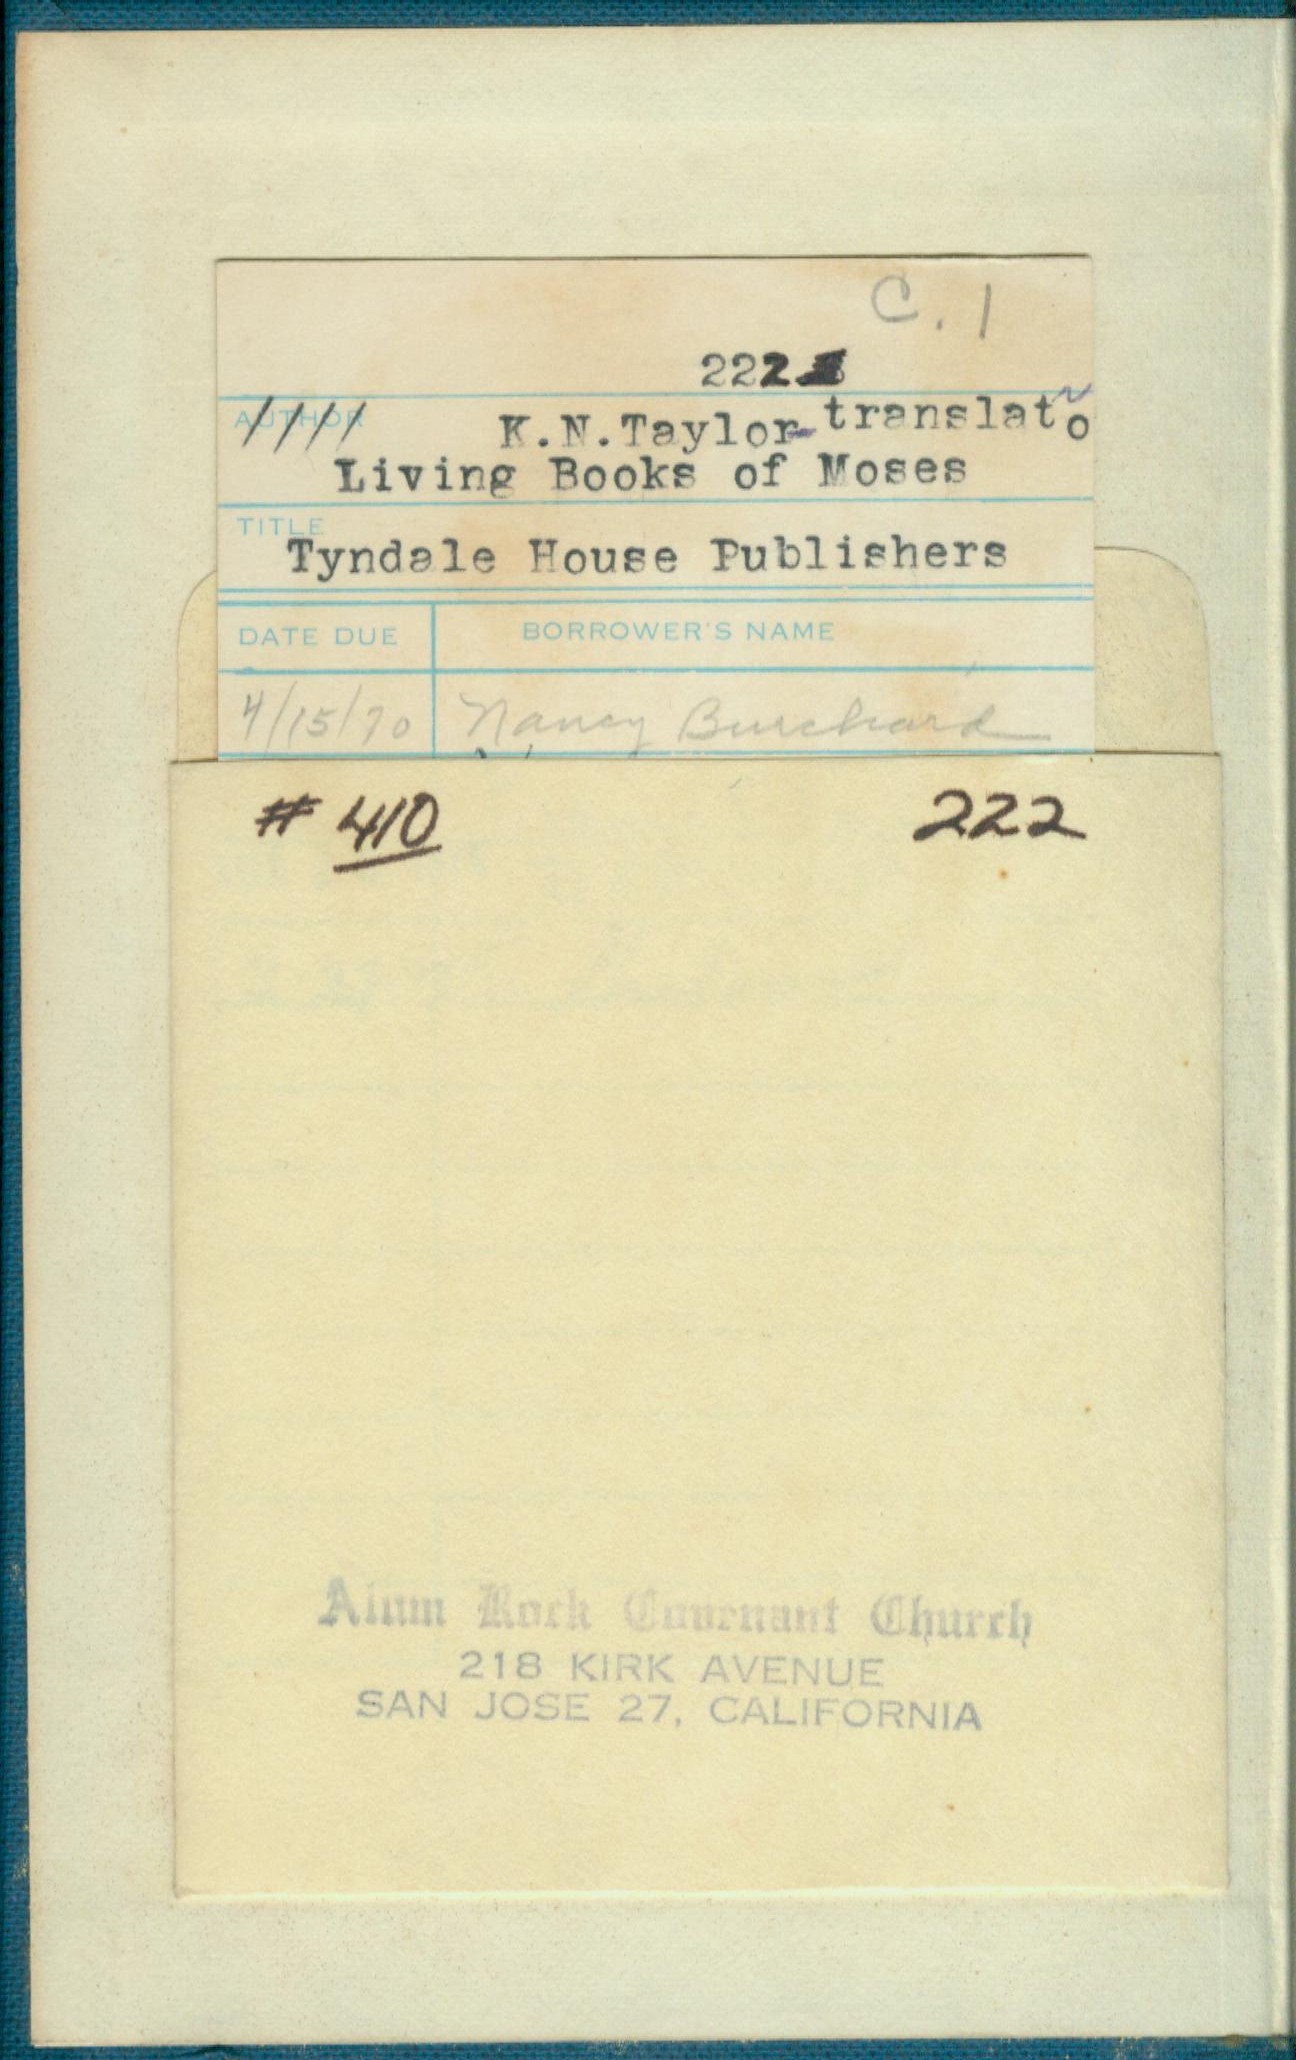 C. 1
222
AUTHOR
K.N.Taylor-translato
Living Books of Moses
TITLE
Tyndale House Publishers
DATE DUE BORROWER'S NAME
4/15/70 Nancy Burchard
# 410 222
Alum Rock Covenant Church
218 KIRK AVENUE
SAN JOSE 27, CALIFORNIA